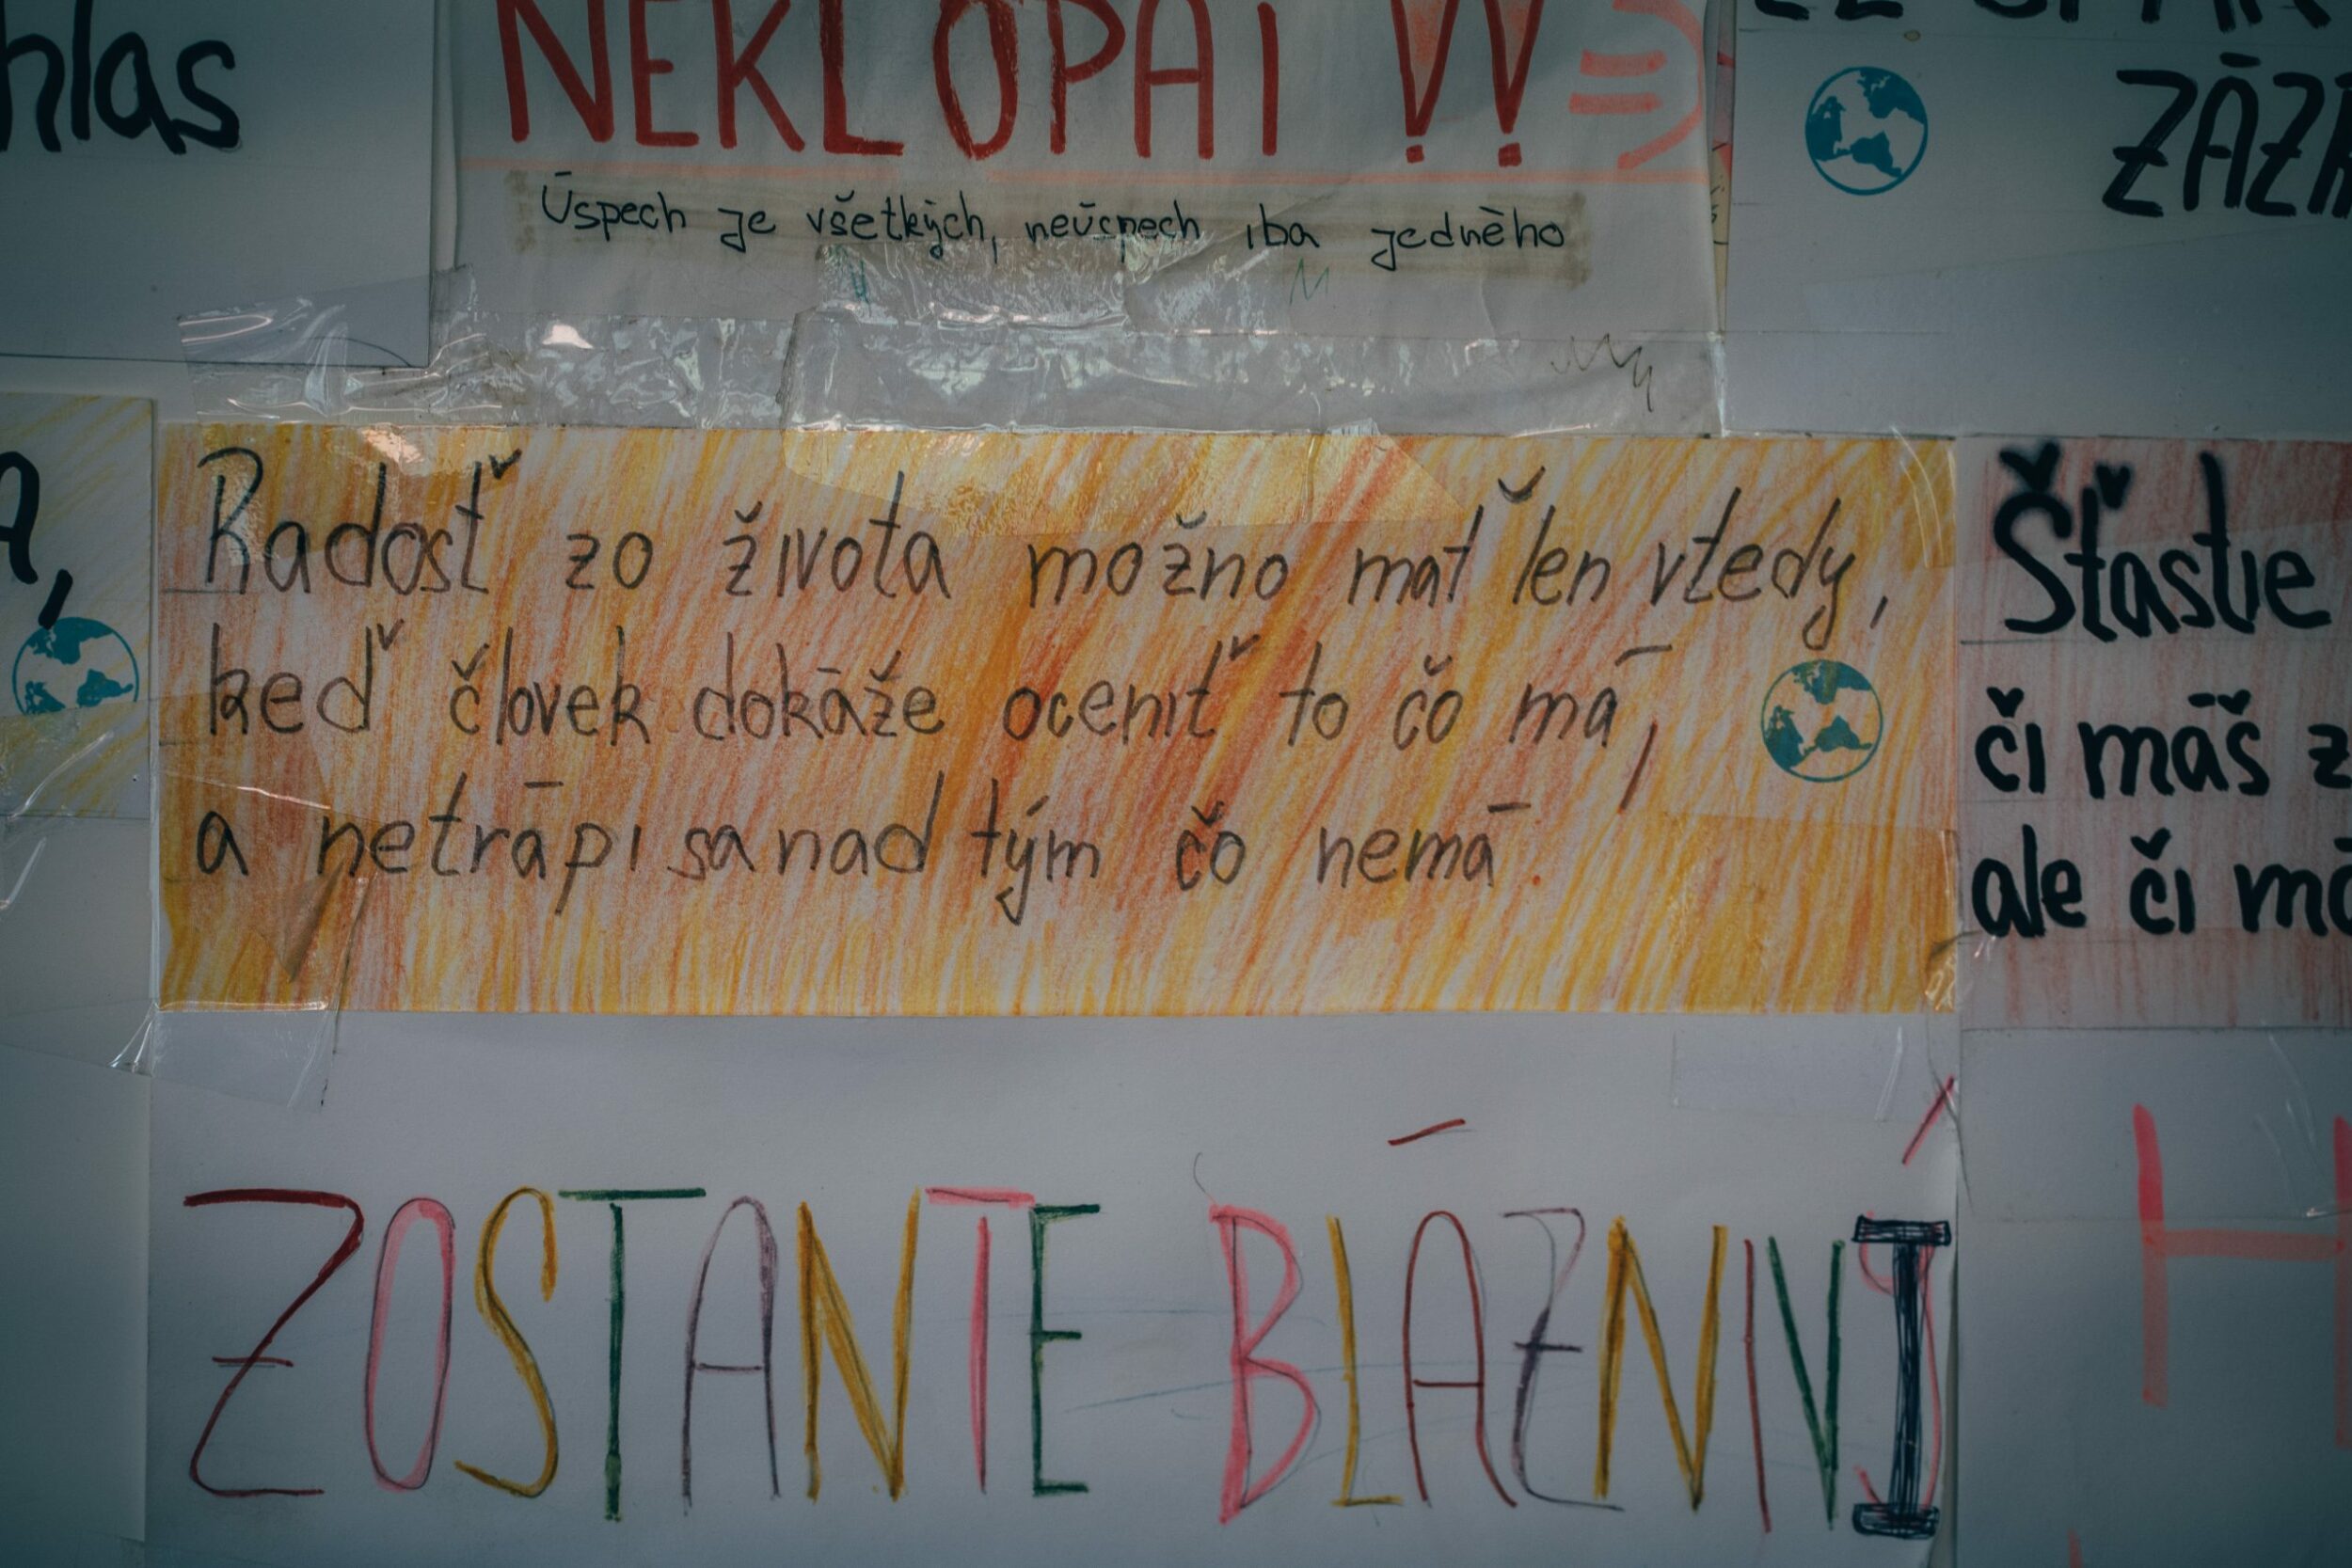 hlas
NEKLOPAŤ !! =)
Úspech je všetkých, neúspech iba jedného
Radosť zo života možno mať len vtedy,
keď človek dokáže oceniť to čo má,
a netrápi sa nad tým čo nemá.
Šťastie
či máš z
ale či
ZOSTANTE BLÁZNIVÍ